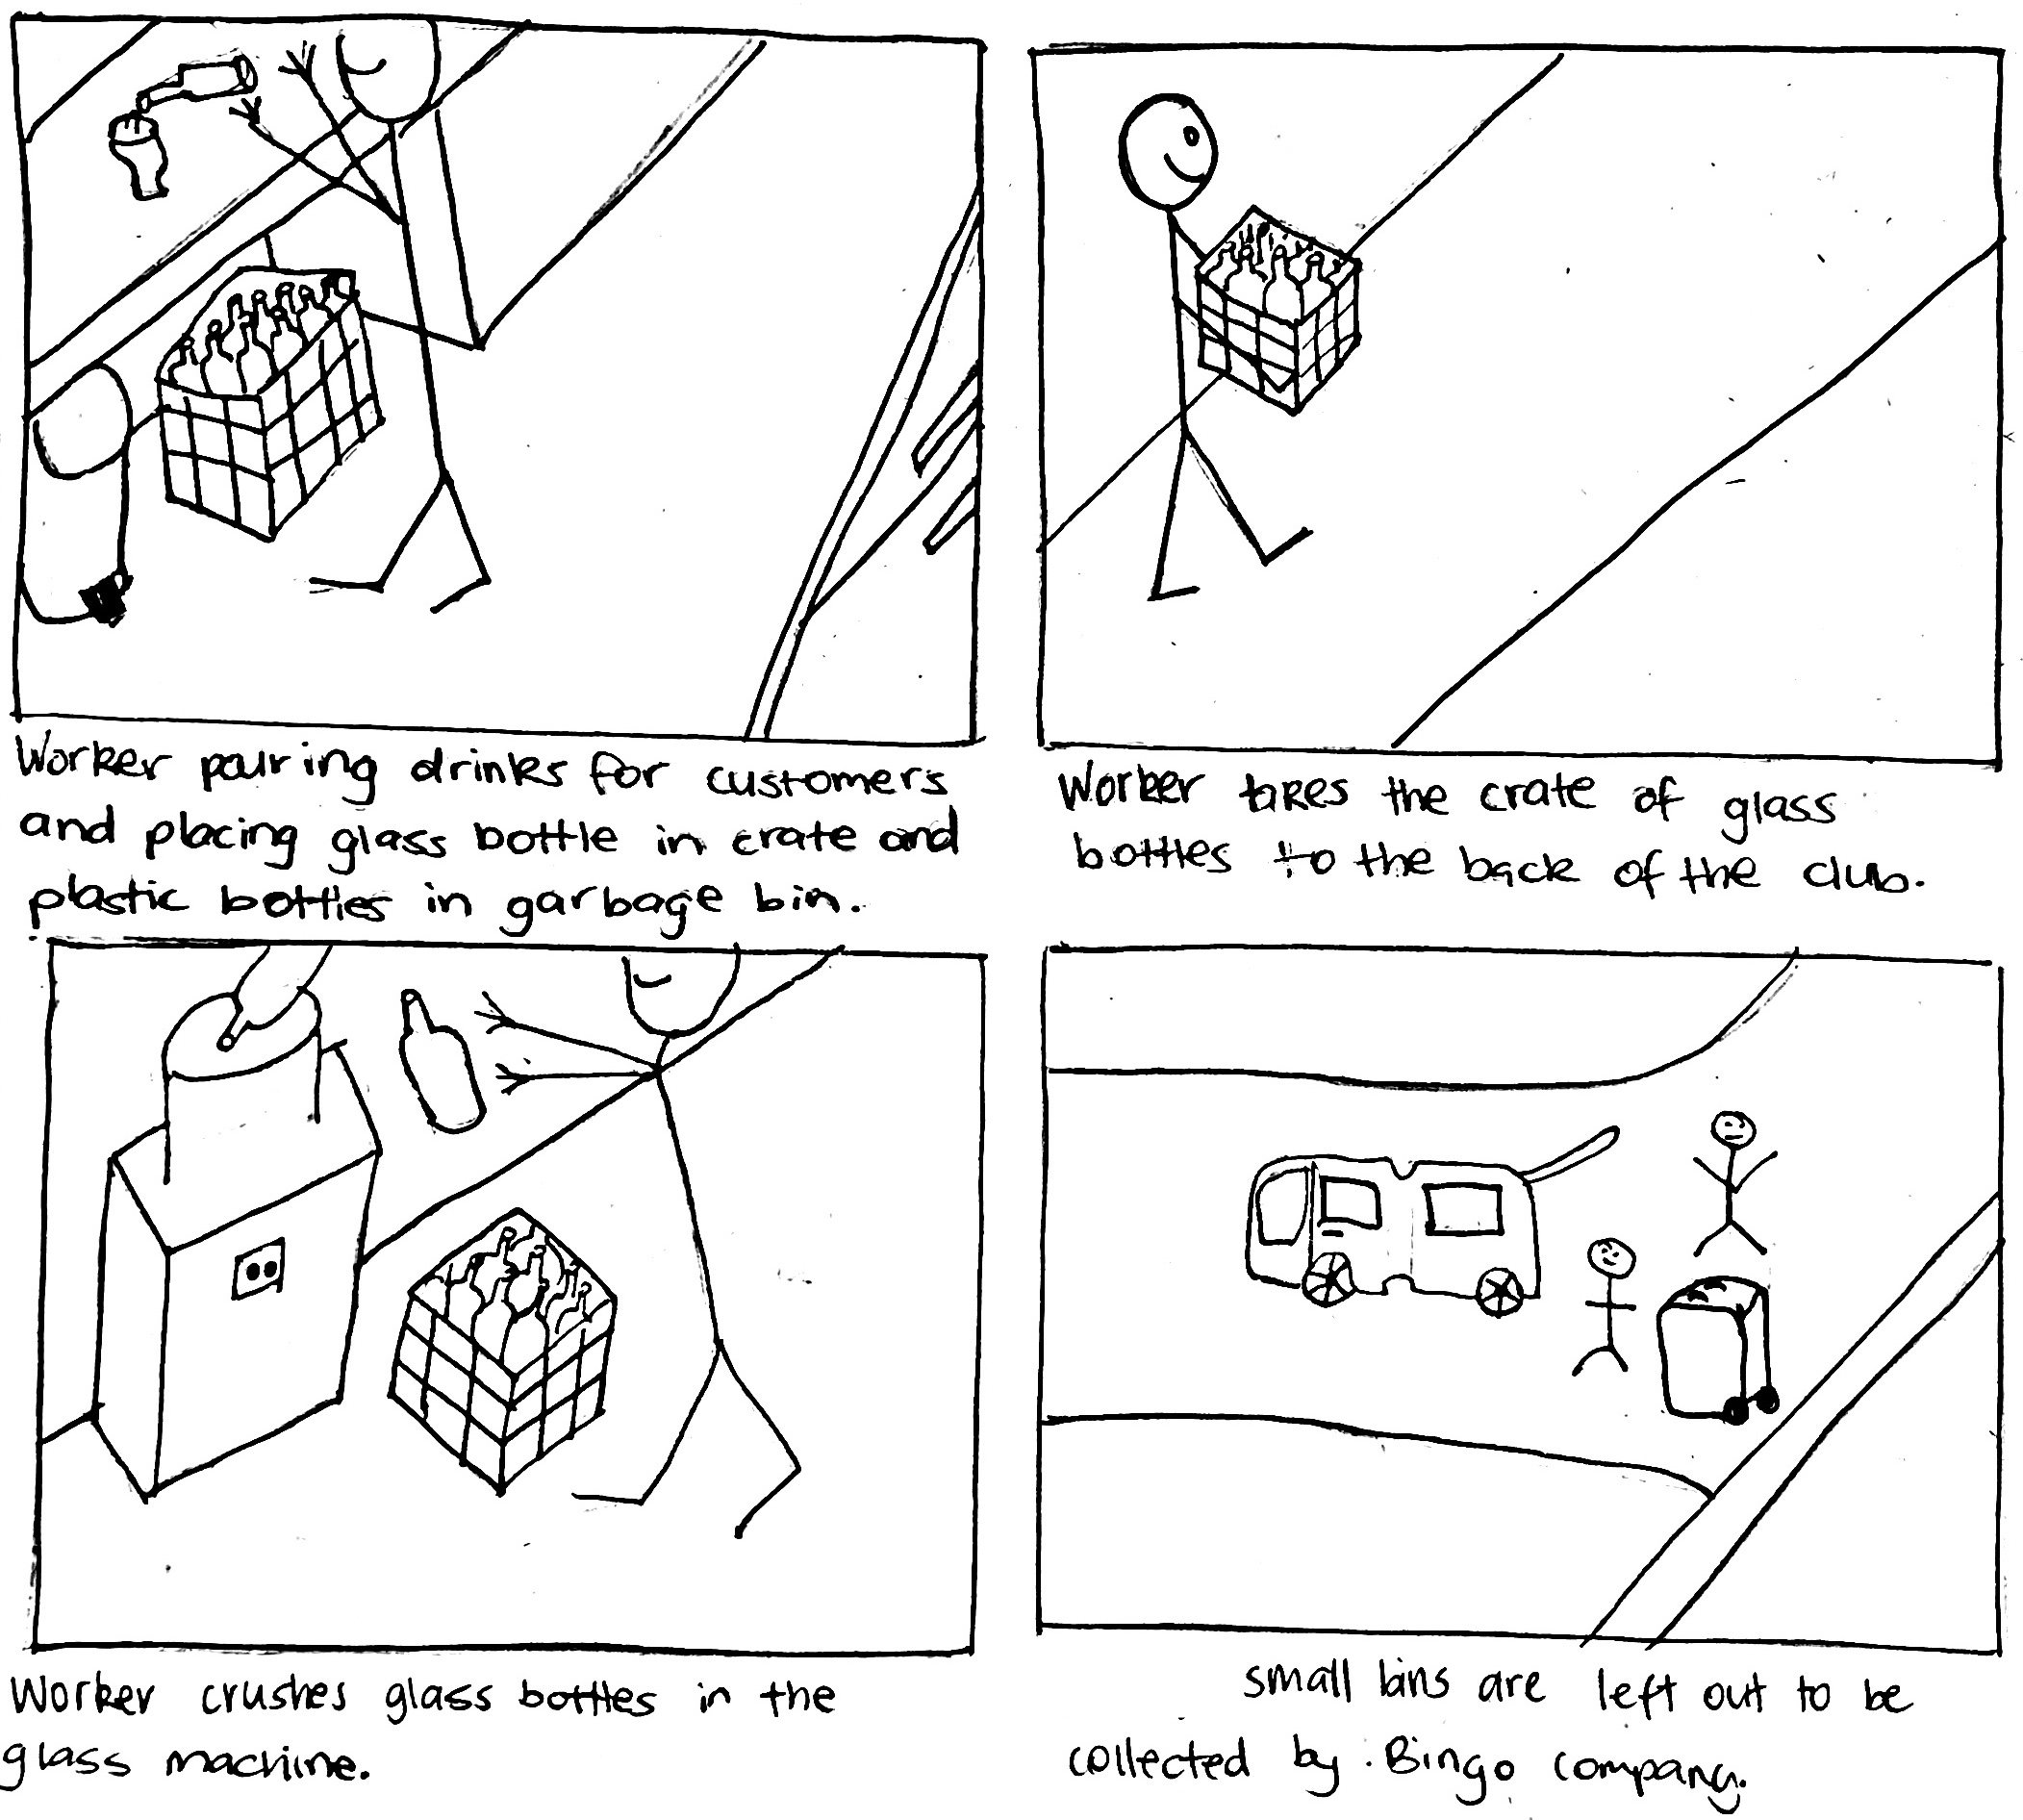 Worker pouring drinks for customers
and placing glass bottle in crate and
plastic bottles in garbage bin.
Worker takes the crate of glass
bottles to the back of the club.
Worker crushes glass bottles in the
glass machine.
small bins are left out to be
collected by Bingo company.